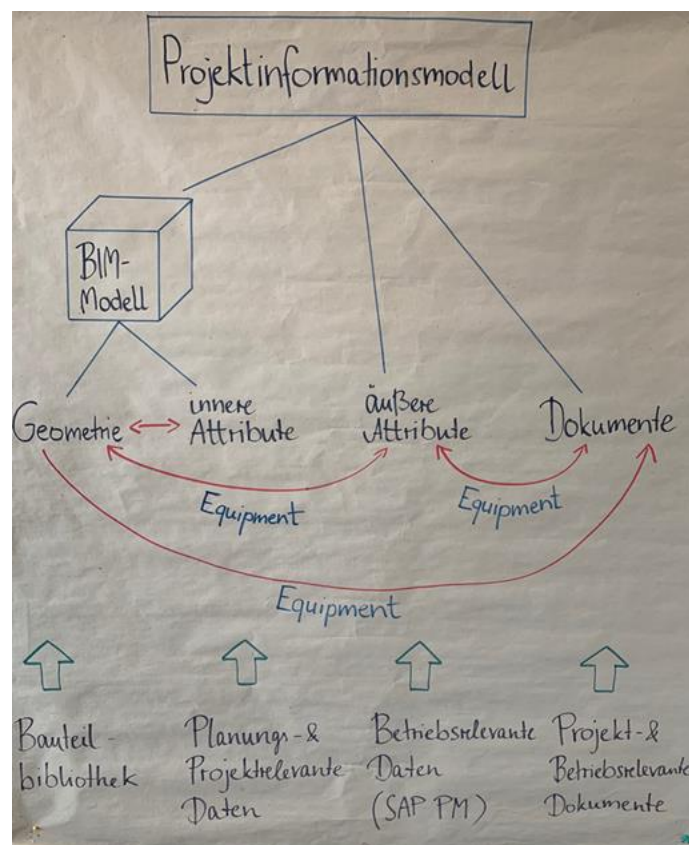 Projektinformationsmodell
BIM-
Modell
Geometrie
innere
Attribute
äußere
Attribute
Dokumente
Equipment
Equipment
Equipment
Bauteil-
bibliothek
Planungs-&
Projektrelevante
Daten
Betriebsrelevante
Daten
(SAP PM)
Projekt-&
Betriebsrelevante
Dokumente